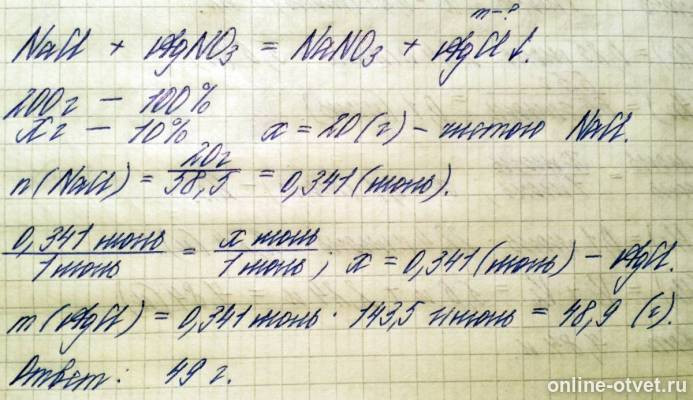 m-?
NaCl + AgNO3 = NaNO3 + AgCl↓.
200г – 100%
Xг – 10% x = 20(г) – чистого NaCl.
n(NaCl) = 20г / 58,5 = 0,341 (моль).
0,341 моль / 1 моль = x моль / 1 моль; x = 0,341 (моль) – AgCl.
m(AgCl) = 0,341 моль · 143,5 г/моль = 48,9 (г).
Ответ: 49 г.
online-otvet.ru